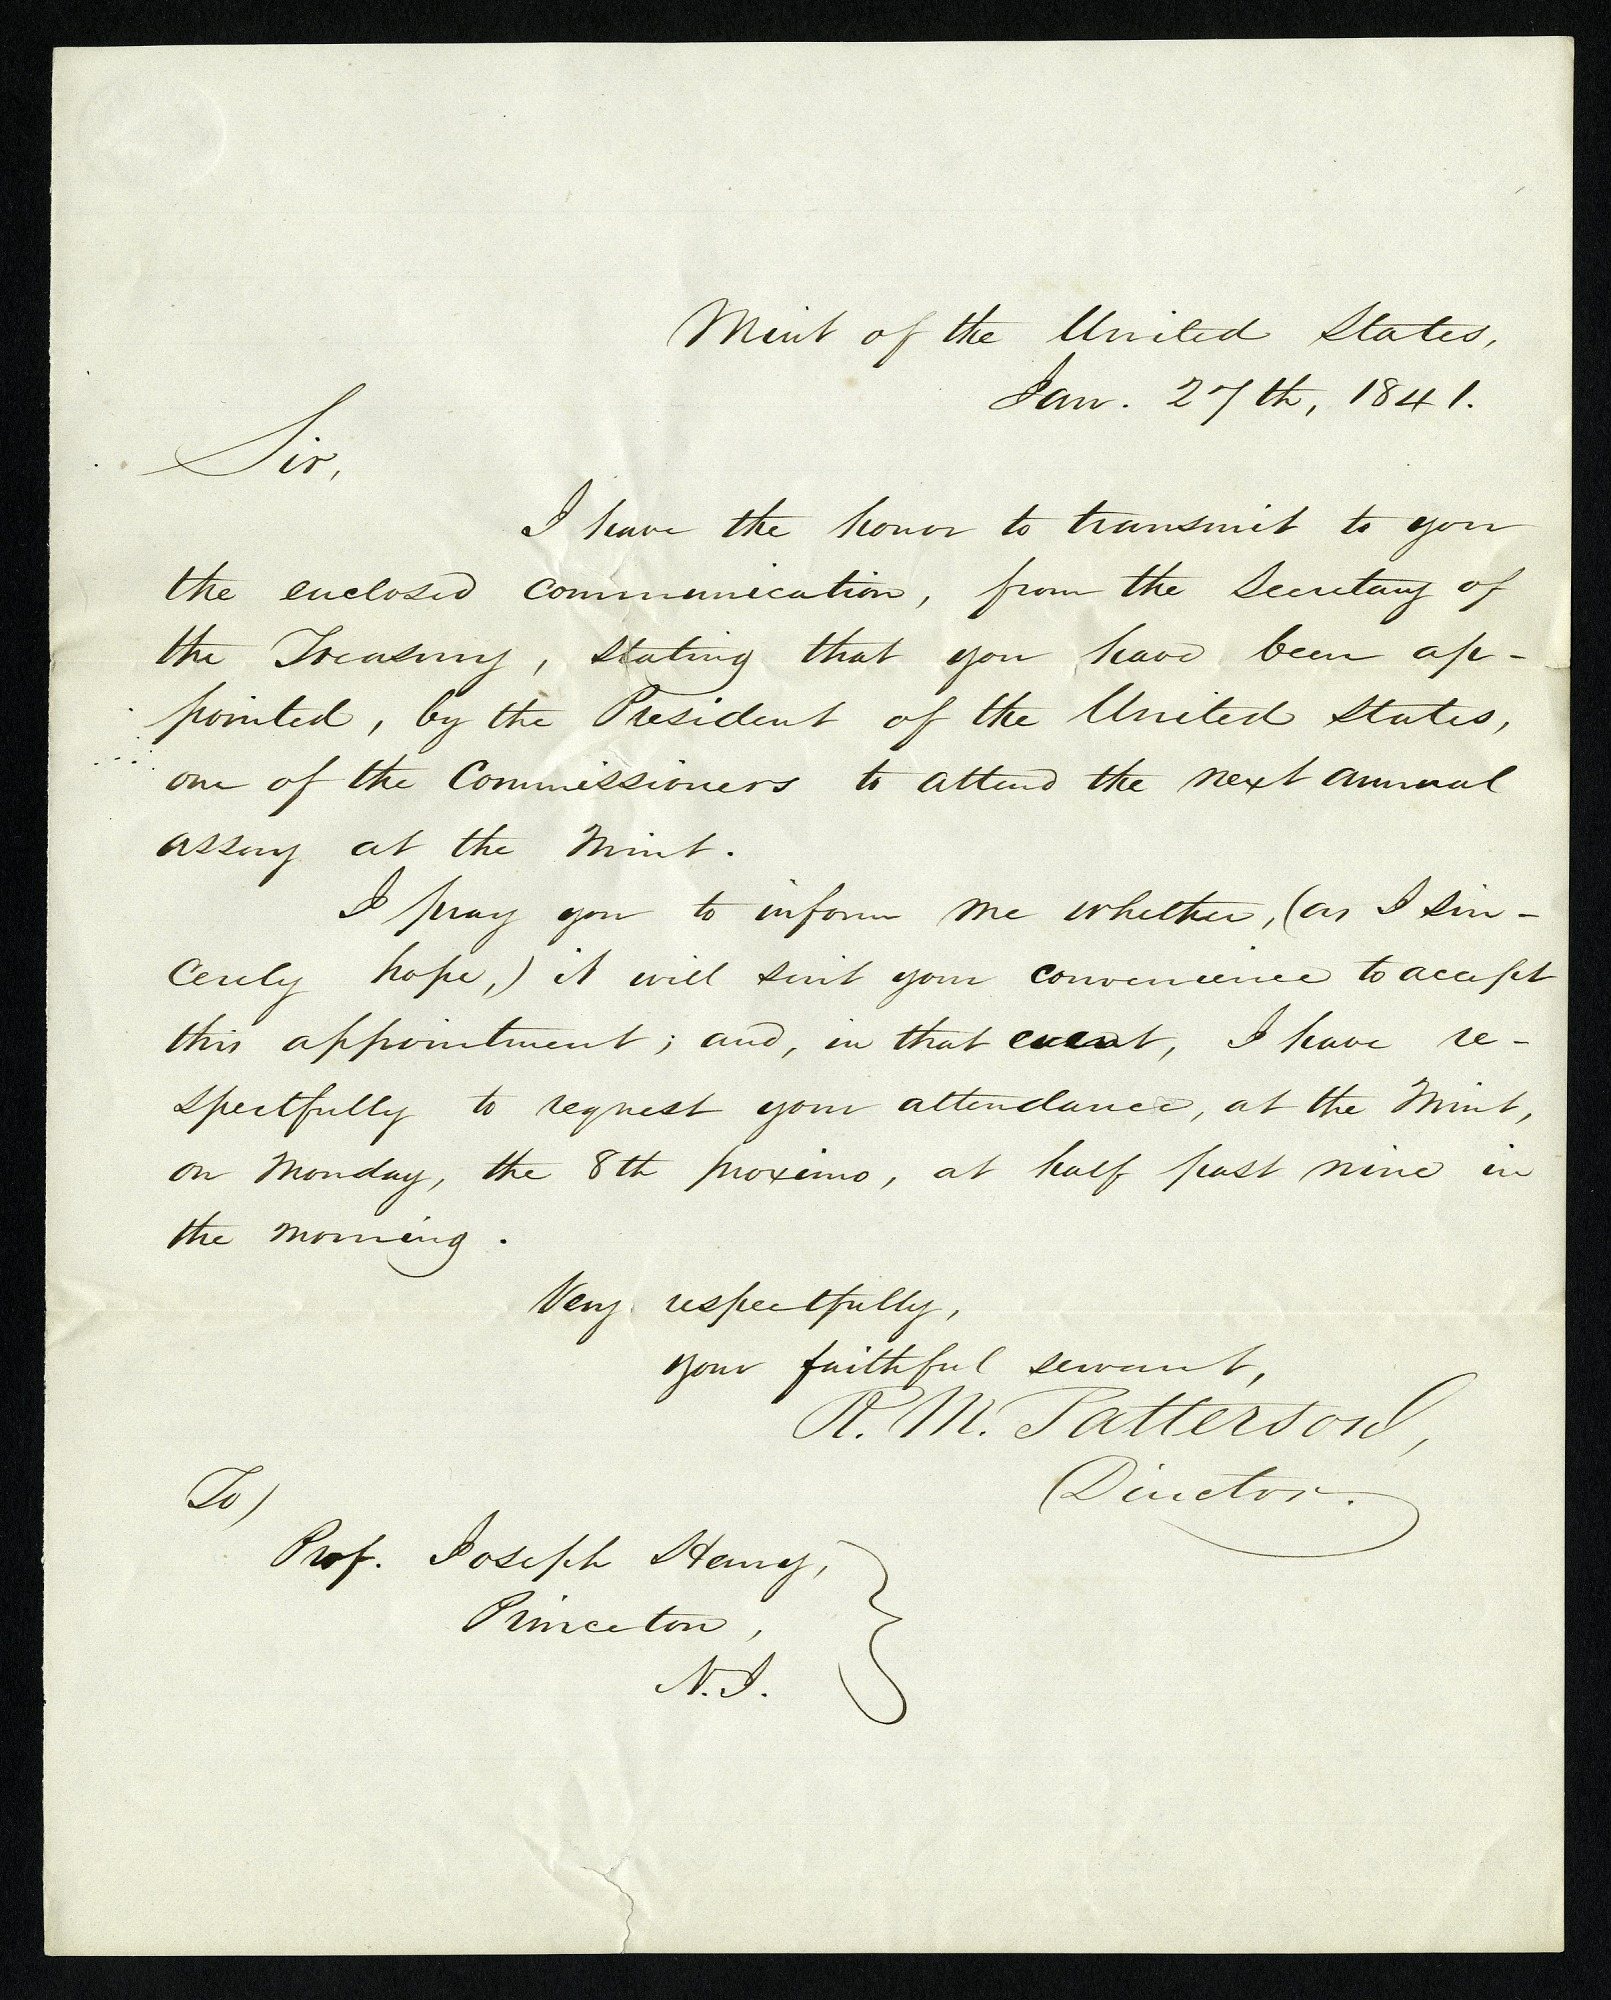 Mint of the United States,
Jan. 27th, 1841.
Sir,
I have the honor to transmit to you
the enclosed communication, from the Secretary of
the Treasury, stating that you have been ap-
pointed, by the President of the United States,
one of the Commissioners to attend the next annual
assay at the Mint.
I pray you to inform me whether, (as I sin-
cerely hope,) it will suit your convenience to accept
this appointment; and, in that event, I have re-
spectfully to request your attendance, at the Mint,
on Monday, the 8th proximo, at half past nine in
the morning.
Very respectfully,
your faithful servant,
R. M. Patterson,
Director.
To)
Prof. Joseph Henry,
Princeton,
N.J.